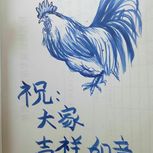 祝：
大家
吉祥如意